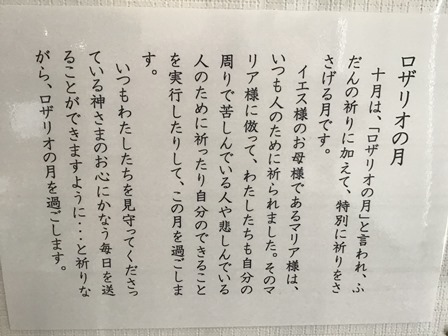 ロザリオの月
十月は、「ロザリオの月」と言われ、ふ
だんの祈りに加えて、特別に祈りをさ
さげる月です。
イエス様のお母様であるマリア様は、
いつも人のために祈られました。そのマ
リア様に倣って、わたしたちも自分の
周りで苦しんでいる人や悲しんでいる
人のために祈ったり自分のできること
を実行したりして、この月を過ごしま
す。
いつもわたしたちを見守ってくださっ
ている神さまのお心にかなう毎日を送
ることができますように・・・と祈りな
がら、ロザリオの月を過ごします。